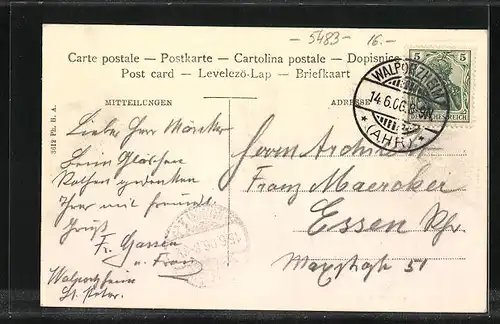 - 5483- 16.-
Carte postale — Postkarte — Cartolina postale — Dopisnice
Post card — Levelező-Lap — Briefkaart
MITTEILUNGEN
ADRESSE
5
DEUTSCHES REICH
WALPORZHEIM
14.6.06
* (AHR) *
3612 Ph. B. A.
Lieber Herr Märcker
Beim Gläschen
Rothen gedenken
Ihrer mit freundl.
Gruß
Fr. Gassen
u. Frau
Walportzheim
St. Peter.
Herrn Architekt
Franz Maercker
Essen Rhr.
Maxstraße 51